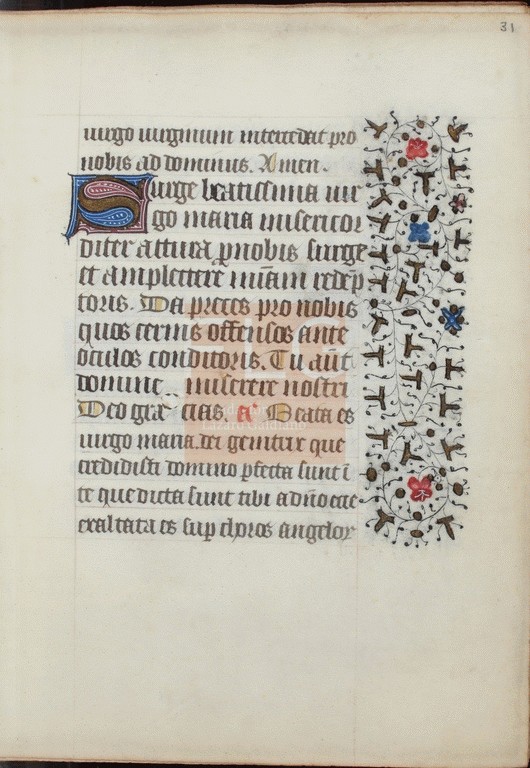 31
uirgo uirginum intercedat pro
nobis ad dominus. Amen.
Surge beatissima uir
go maria misericor
diter actura pnobis surge
et amplectere nr̄am redēp
toris. Da preces pro nobis
quos cernis offensos ante
oculos conditoris. Tu aūt
domine.. miserere nostri
Deo gra cias. a Beata es
uirgo maria. dei genitrix que
credidisti domino pfecta sunt ī
te que dicta sunt tibi a dn̄o ecce
exaltata es sup choros angelor
Lázaro Galdiano